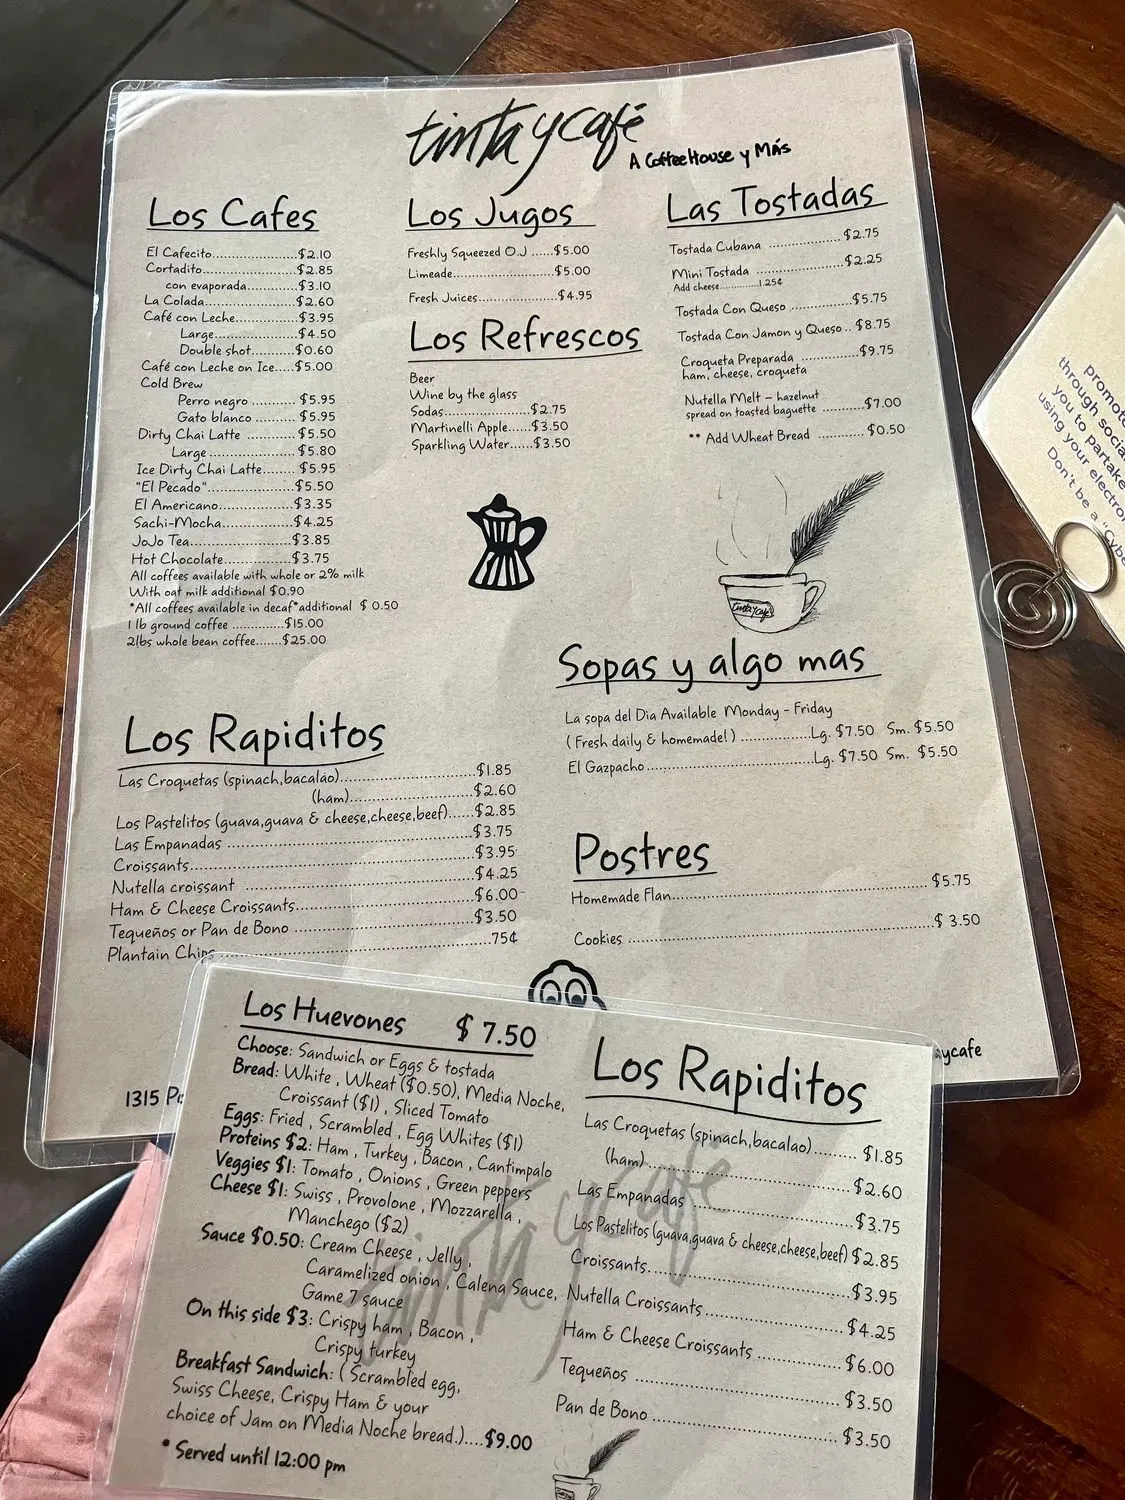 tinta y café
A CoffeeHouse y Más
Los Cafes
El Cafecito.....................$2.10
Cortadito.......................$2.85
con evaporada............$3.10
La Colada.......................$2.60
Café con Leche................$3.95
Large....................$4.50
Double shot..........$0.60
Café con Leche on Ice.....$5.00
Cold Brew
Perro negro ............$5.95
Gato blanco ............$5.95
Dirty Chai Latte ............$5.50
Large ....................$5.80
Ice Dirty Chai Latte........$5.95
"El Pecado"......................$5.50
El Americano...................$3.35
Sachi-Mocha..................$4.25
JoJo Tea.........................$3.85
Hot Chocolate................$3.75
All coffees available with whole or 2% milk
With oat milk additional $0.90
*All coffees available in decaf*additional $ 0.50
1 lb ground coffee .............$15.00
2lbs whole bean coffee.......$25.00
Los Jugos
Freshly Squeezed O.J ......$5.00
Limeade..........................$5.00
Fresh Juices....................$4.95
Los Refrescos
Beer
Wine by the glass
Sodas......................$2.75
Martinelli Apple.......$3.50
Sparkling Water......$3.50
Las Tostadas
Tostada Cubana ..................$2.75
Mini Tostada ......................$2.25
Add cheese...............1.25¢
Tostada Con Queso ................$5.75
Tostada Con Jamon y Queso.. $8.75
Croqueta Preparada ..............$9.75
ham, cheese, croqueta
Nutella Melt – hazelnut
spread on toasted baguette ..........$7.00
** Add Wheat Bread ...........$0.50
tintaycafé
Sopas y algo mas
La sopa del Dia Available Monday - Friday
(Fresh daily & homemade!) ................Lg. $7.50 Sm. $5.50
El Gazpacho......................................Lg. $7.50 Sm. $5.50
Postres
Homemade Flan.................................................$5.75
Cookies ............................................................$ 3.50
Los Rapiditos
Las Croquetas (spinach,bacalao)...........................$1.85
(ham)........................$2.60
Los Pastelitos (guava,guava & cheese,cheese,beef)......$2.85
Las Empanadas ................................................$3.75
Croissants.........................................................$3.95
Nutella croissant ..............................................$4.25
Ham & Cheese Croissants...................................$6.00
Tequeños or Pan de Bono ...................................$3.50
Plantain Chips ..................................................75¢
1315 Po
aycafe
promot
through socia
you to partake
using your electro
Don't be a "Cybe
Los Huevones $ 7.50
Choose: Sandwich or Eggs & tostada
Bread: White , Wheat ($0.50), Media Noche,
Croissant ($1) , Sliced Tomato
Eggs: Fried , Scrambled , Egg Whites ($1)
Proteins $2: Ham , Turkey , Bacon , Cantimpalo
Veggies $1: Tomato , Onions , Green peppers
Cheese $1: Swiss , Provolone , Mozzarella ,
Manchego ($2)
Sauce $0.50: Cream Cheese , Jelly ,
Caramelized onion , Calena Sauce,
Game 7 sauce
On this side $3: Crispy ham , Bacon ,
Crispy turkey
Breakfast Sandwich: ( Scrambled egg,
Swiss Cheese, Crispy Ham & your
choice of Jam on Media Noche bread.)....$9.00
* Served until 12:00 pm
Los Rapiditos
Las Croquetas (spinach,bacalao)......... $1.85
(ham)..........................................$2.60
Las Empanadas ................................$3.75
Los Pastelitos (guava,guava & cheese,cheese,beef) $2.85
Croissants........................................$3.95
Nutella Croissants............................$4.25
Ham & Cheese Croissants .................$6.00
Tequeños .........................................$3.50
Pan de Bono .....................................$3.50
tinta y café